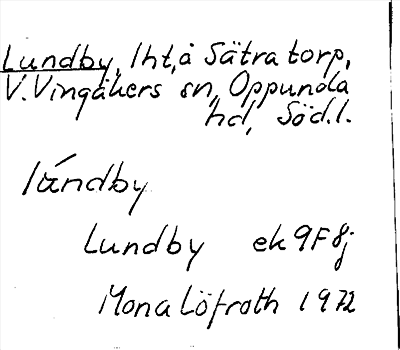 Lundby, lht, å Sätra torp,
V. Vingåkers sn, Oppunda
hd, Söd.l.
lúndby
Lundby ek 9F8j
Mona Löfroth 1972